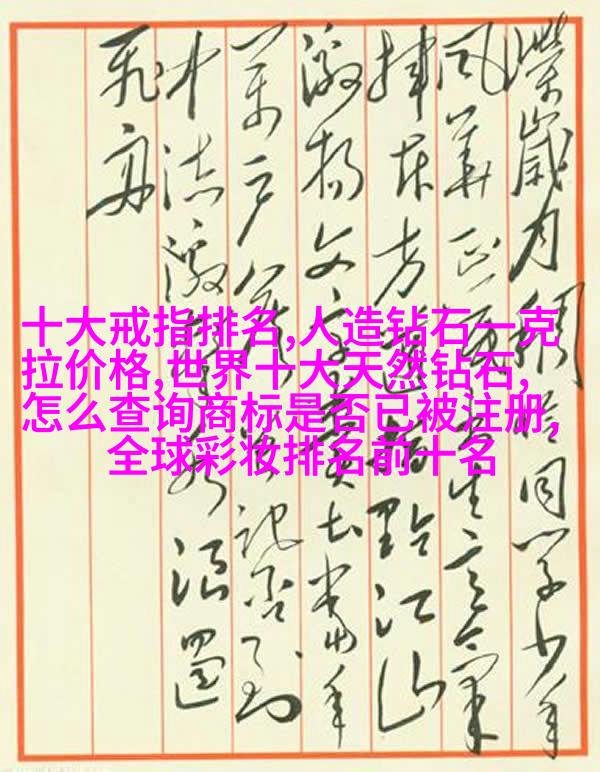 十大戒指排名,人造钻石一克
拉价格,世界十大天然钻石,
怎么查询商标是否已被注册,
全球彩妆排名前十名
歲月稠恰同学少年
风华正茂书生意气
挥斥方遒指點江山
激扬文字粪土当年
萬户侯曾记否到
中流击水浪遏
飛舟